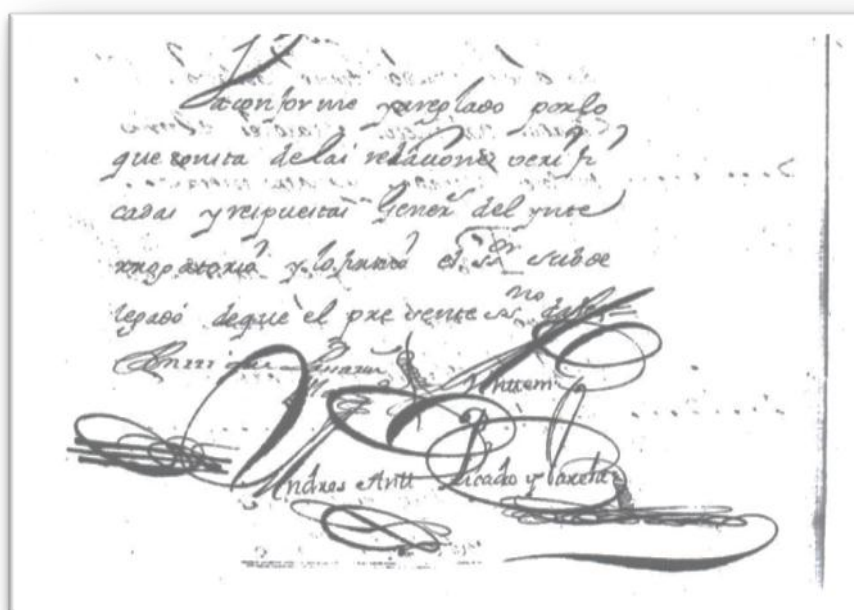 Va conforme y arreglado por lo
que consta de las relaciones verifi
cadas y respuestas Gener.s del ynte
rrogatorio y lo firmo el S.or subde
legado de que el presente ss.no da fee=
Antte mi
Andres Antt Picado y Varela